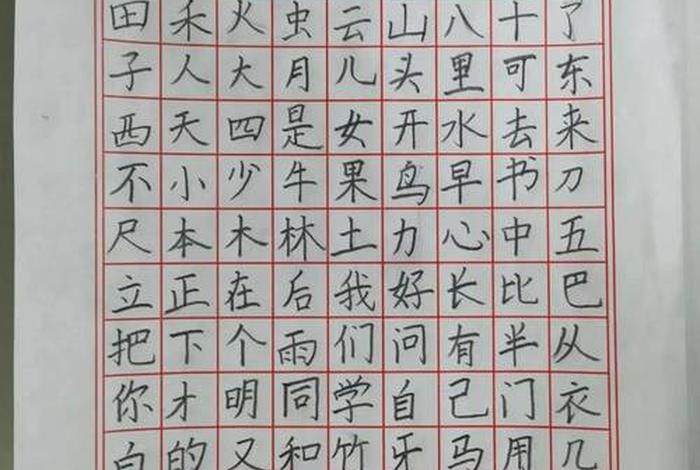 田禾火虫云山八十了
子人大月儿头里可东
西天四是女开水去来
不小少牛果鸟早书刀
尺本木林土力心中五
立正在后我好长比巴
把下个雨们问有半从
你才明同学自己门衣
白的又和竹牙马用几